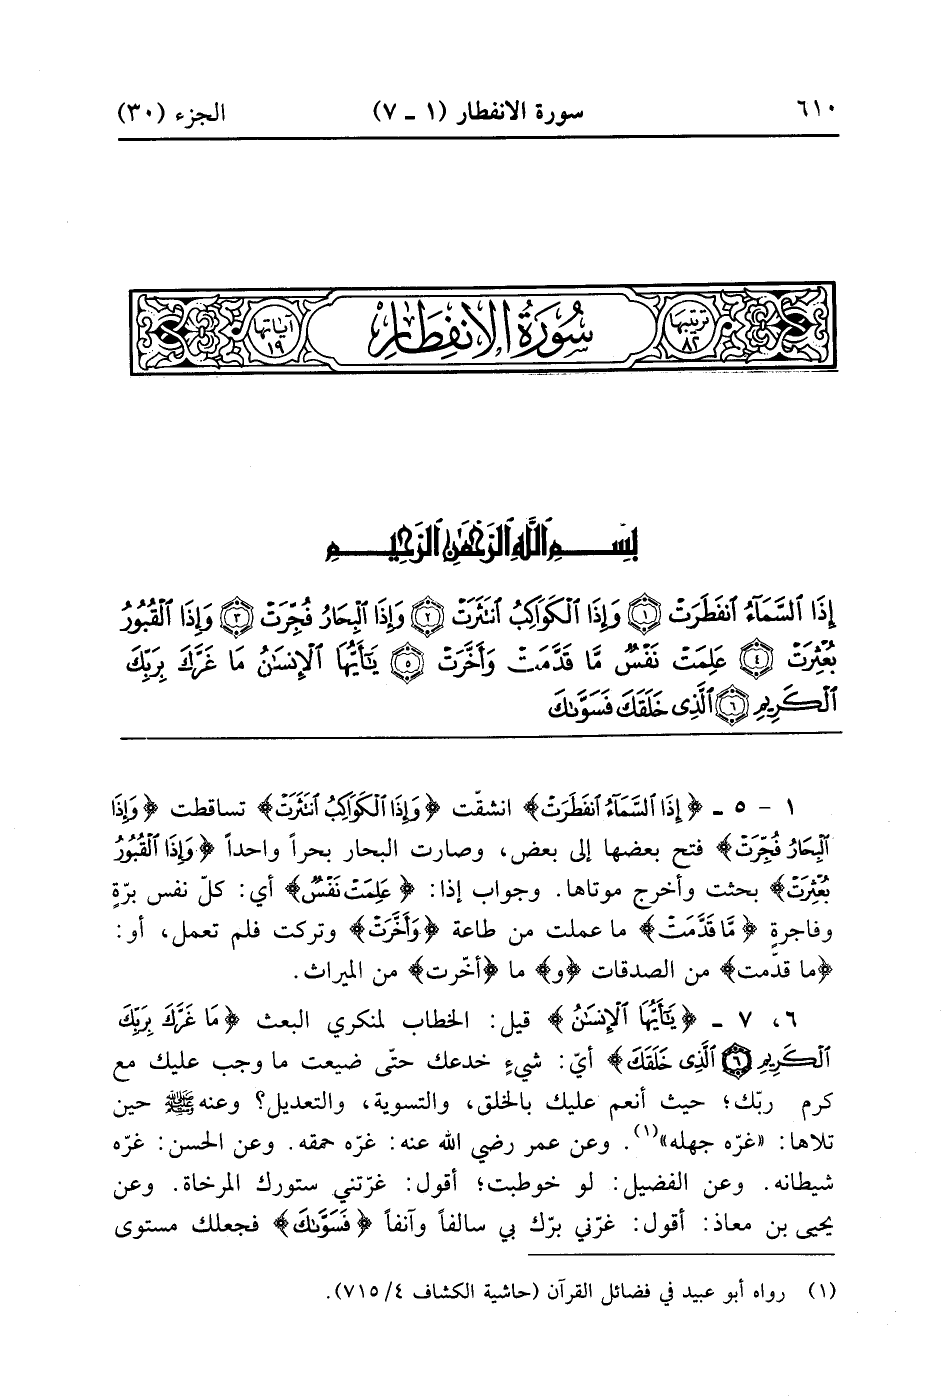 ٦١٠
سورة الانفطار (١ - ٧)
الجزء (٣٠)
ترتيبها ٨٢
سُورَةُ الانفِطَارِ
آياتها ١٩
بِسْمِ اللَّهِ الرَّحْمَٰنِ الرَّحِيمِ
إِذَا ٱلسَّمَآءُ ٱنفَطَرَتْ ۝١ وَإِذَا ٱلْكَوَاكِبُ ٱنتَثَرَتْ ۝٢ وَإِذَا ٱلْبِحَارُ فُجِّرَتْ ۝٣ وَإِذَا ٱلْقُبُورُ
بُعْثِرَتْ ۝٤ عَلِمَتْ نَفْسٌ مَّا قَدَّمَتْ وَأَخَّرَتْ ۝٥ يَٰٓأَيُّهَا ٱلْإِنسَٰنُ مَا غَرَّكَ بِرَبِّكَ
ٱلْكَرِيمِ ۝٦ ٱلَّذِى خَلَقَكَ فَسَوَّىٰكَ
١ - ٥ - ﴿إِذَا ٱلسَّمَآءُ ٱنفَطَرَتْ﴾ انشقّت ﴿وَإِذَا ٱلْكَوَاكِبُ ٱنتَثَرَتْ﴾ تساقطت ﴿وَإِذَا
ٱلْبِحَارُ فُجِّرَتْ﴾ فتح بعضها إلى بعض، وصارت البحار بحراً واحداً ﴿وَإِذَا ٱلْقُبُورُ
بُعْثِرَتْ﴾ بحثت وأخرج موتاها. وجواب إذا: ﴿عَلِمَتْ نَفْسٌ﴾ أي: كلّ نفس برّةٍ
وفاجرةٍ ﴿مَّا قَدَّمَتْ﴾ ما عملت من طاعة ﴿وَأَخَّرَتْ﴾ وتركت فلم تعمل، أو:
﴿ما قدّمت﴾ من الصدقات ﴿و﴾ ما ﴿أخّرت﴾ من الميراث.
٦، ٧ - ﴿يَٰٓأَيُّهَا ٱلْإِنسَٰنُ﴾ قيل: الخطاب لمنكري البعث ﴿مَا غَرَّكَ بِرَبِّكَ
ٱلْكَرِيمِ ۝٦ ٱلَّذِى خَلَقَكَ﴾ أيّ: شيءٍ خدعك حتّى ضيعت ما وجب عليك مع
كرم ربّك؛ حيث أنعم عليك بالخلق، والتسوية، والتعديل؟ وعنه ﷺ حين
تلاها: «غرّه جهله»(١). وعن عمر رضي الله عنه: غرّه حمقه. وعن الحسن: غرّه
شيطانه. وعن الفضيل: لو خوطبت؛ أقول: غرّتني ستورك المرخاة. وعن
يحيى بن معاذ: أقول: غرّني برّك بي سالفاً وآنفاً ﴿فَسَوَّىٰكَ﴾ فجعلك مستوى
(١) رواه أبو عبيد في فضائل القرآن (حاشية الكشاف ٤/ ٧١٥).